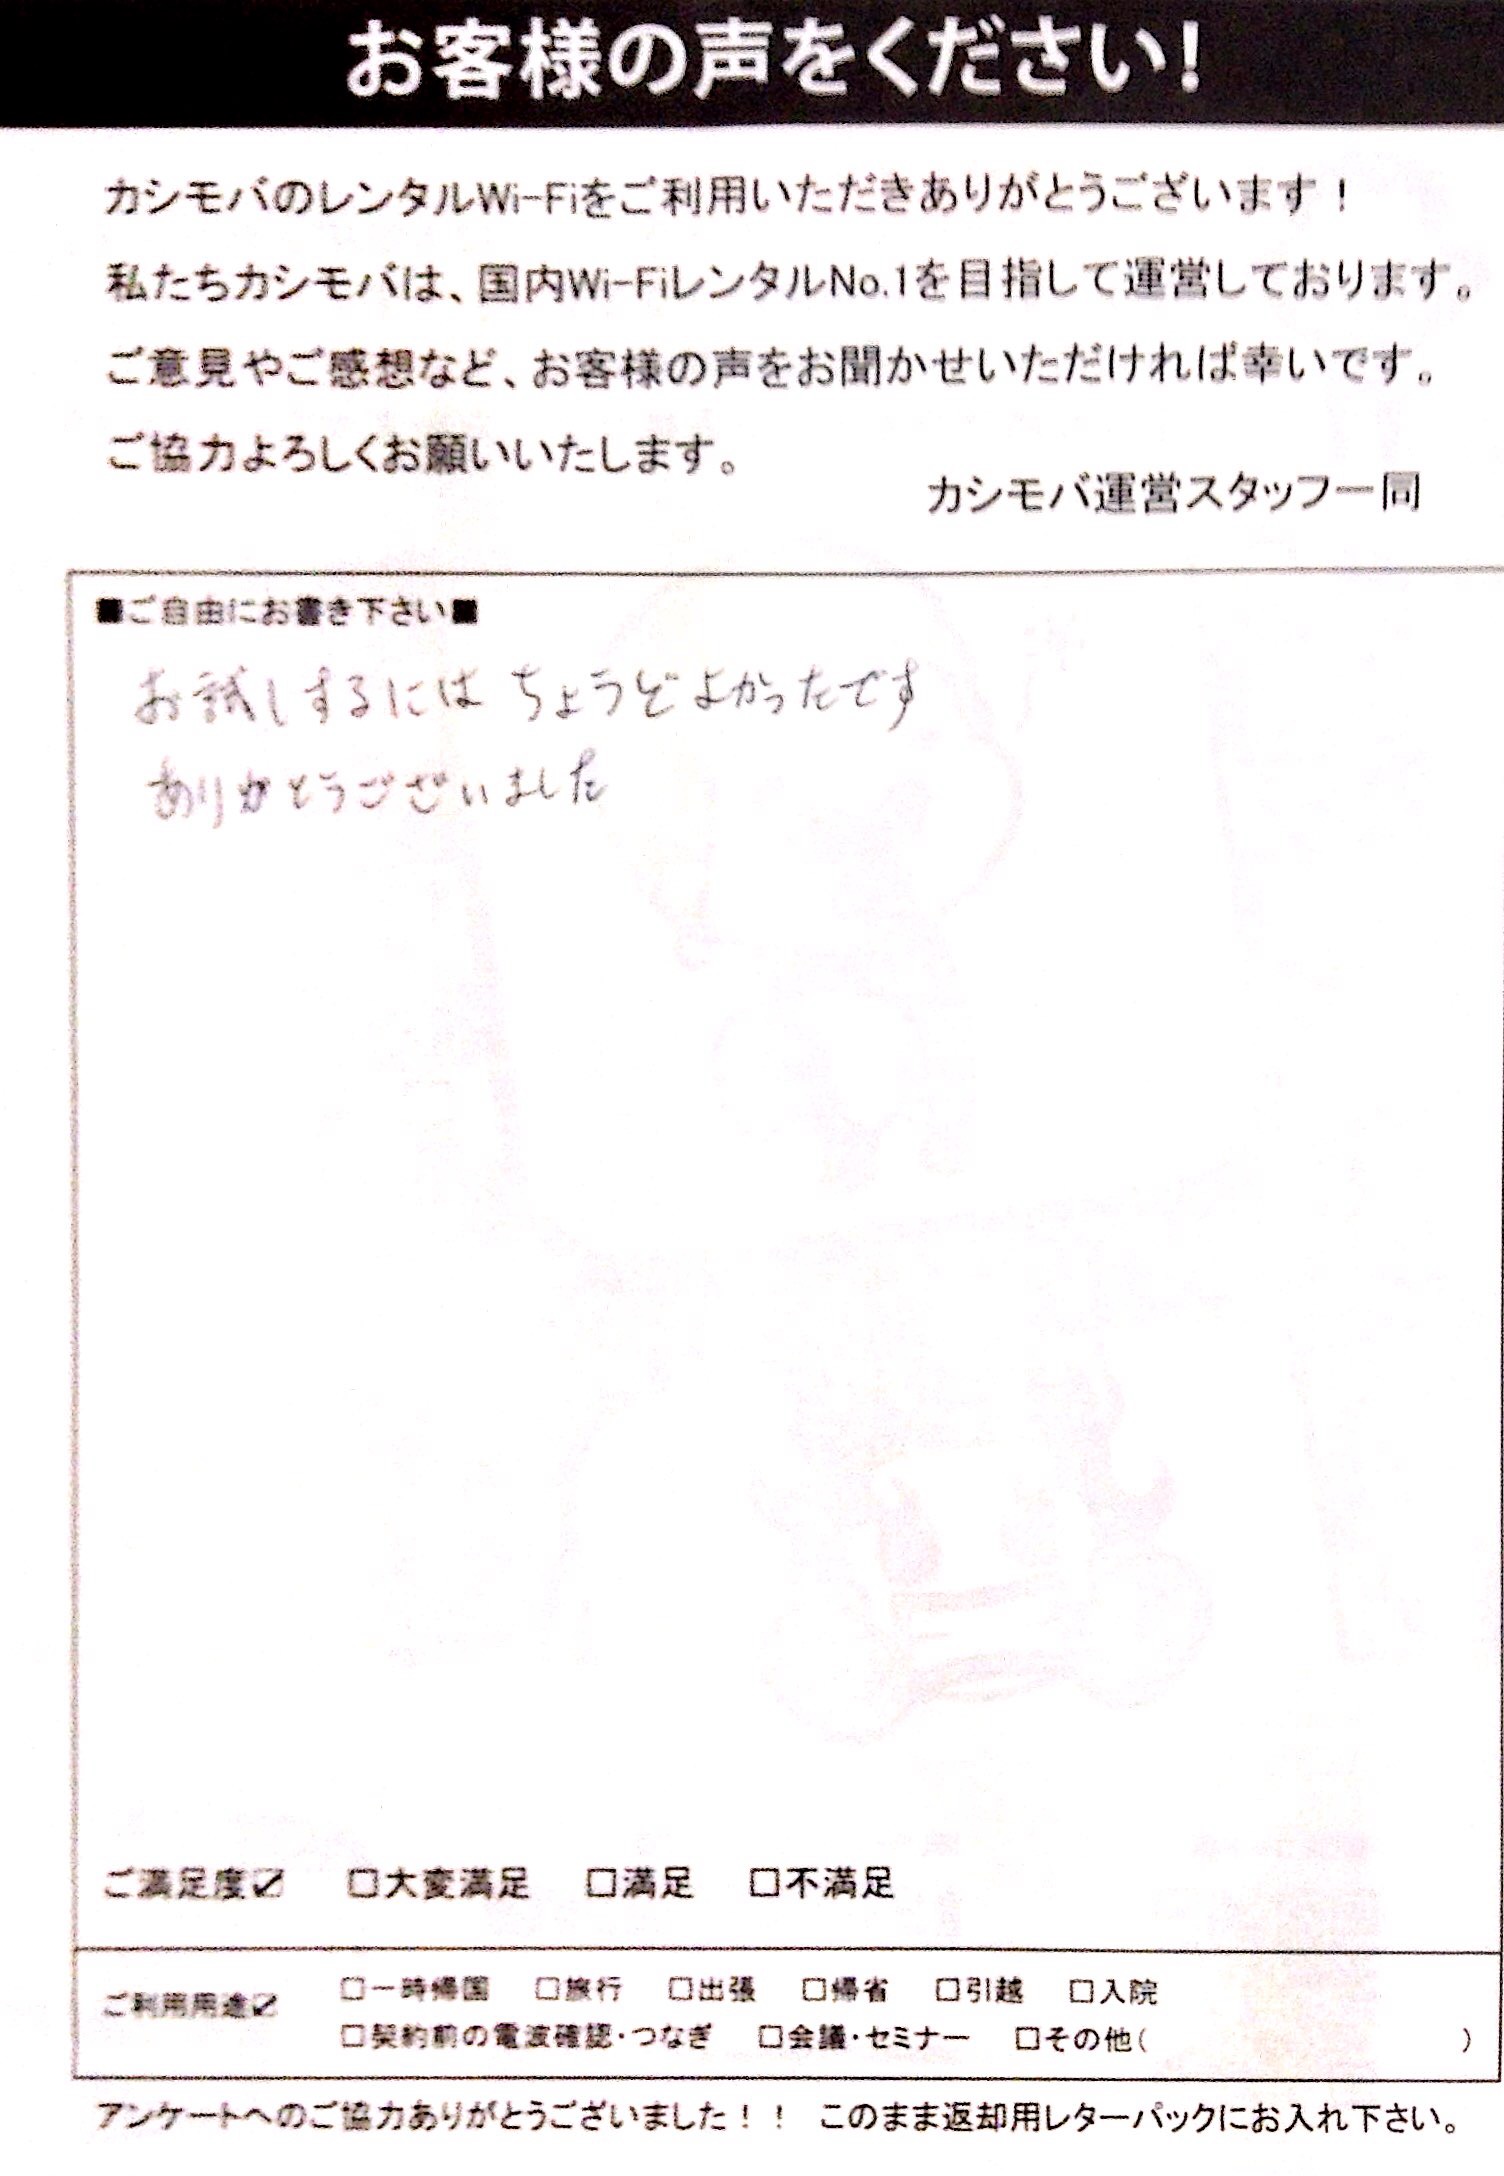 お客様の声をください!
カシモバのレンタルWi-Fiをご利用いただきありがとうございます！
私たちカシモバは、国内Wi-FiレンタルNo.1を目指して運営しております。
ご意見やご感想など、お客様の声をお聞かせいただければ幸いです。
ご協力よろしくお願いいたします。
カシモバ運営スタッフ一同
■ご自由にお書き下さい■
お試しするには ちょうどよかったです
ありがとうございました
ご満足度☑ □大変満足 □満足 □不満足
ご利用用途☑ □一時帰国 □旅行 □出張 □帰省 □引越 □入院
□契約前の電波確認・つなぎ □会議・セミナー □その他( )
アンケートへのご協力ありがとうございました！！ このまま返却用レターパックにお入れ下さい。